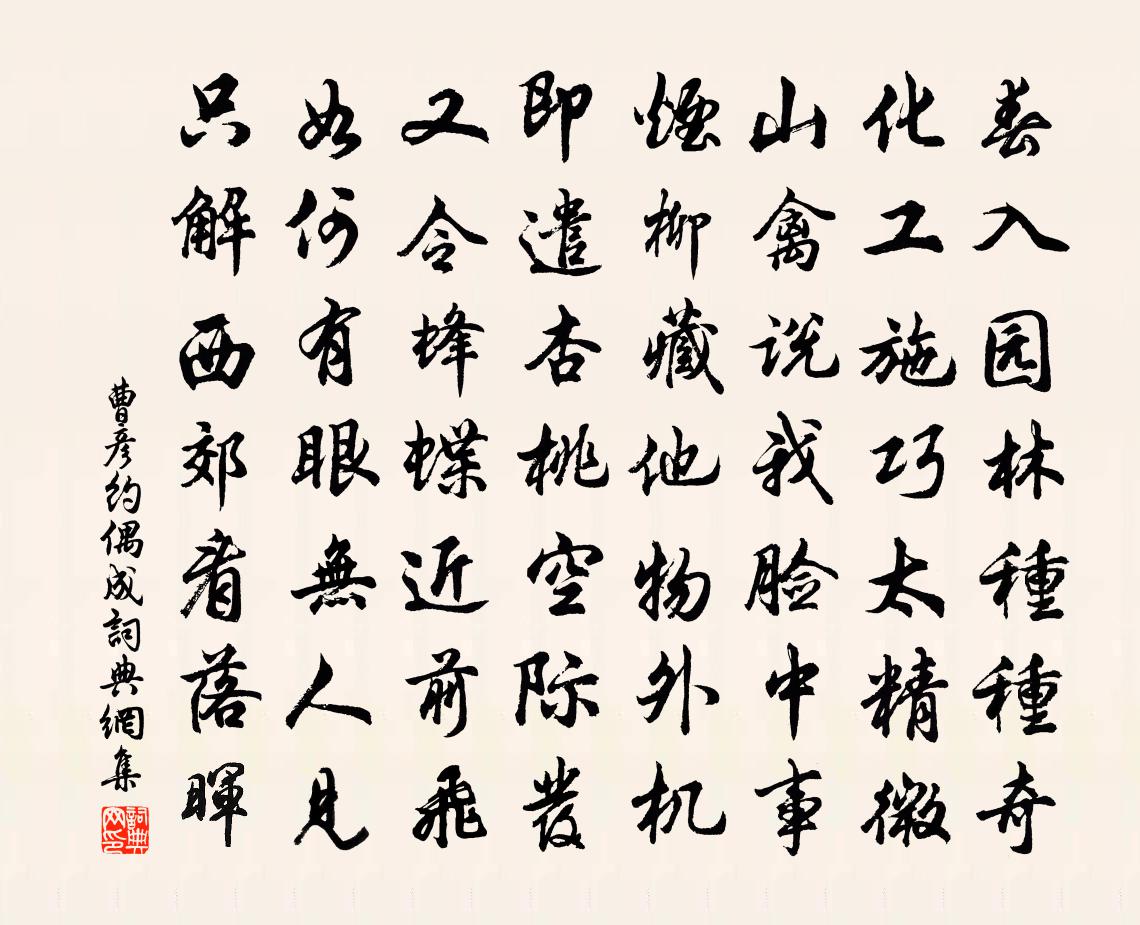 春入园林種種奇
化工施巧太精微
山禽说我脸中事
煙柳藏他物外机
即遣杏桃空际發
又令蜂蝶近前飛
如何有眼無人見
只解西郊看落暉
曹彦約偶成詞典網集
詞典网印